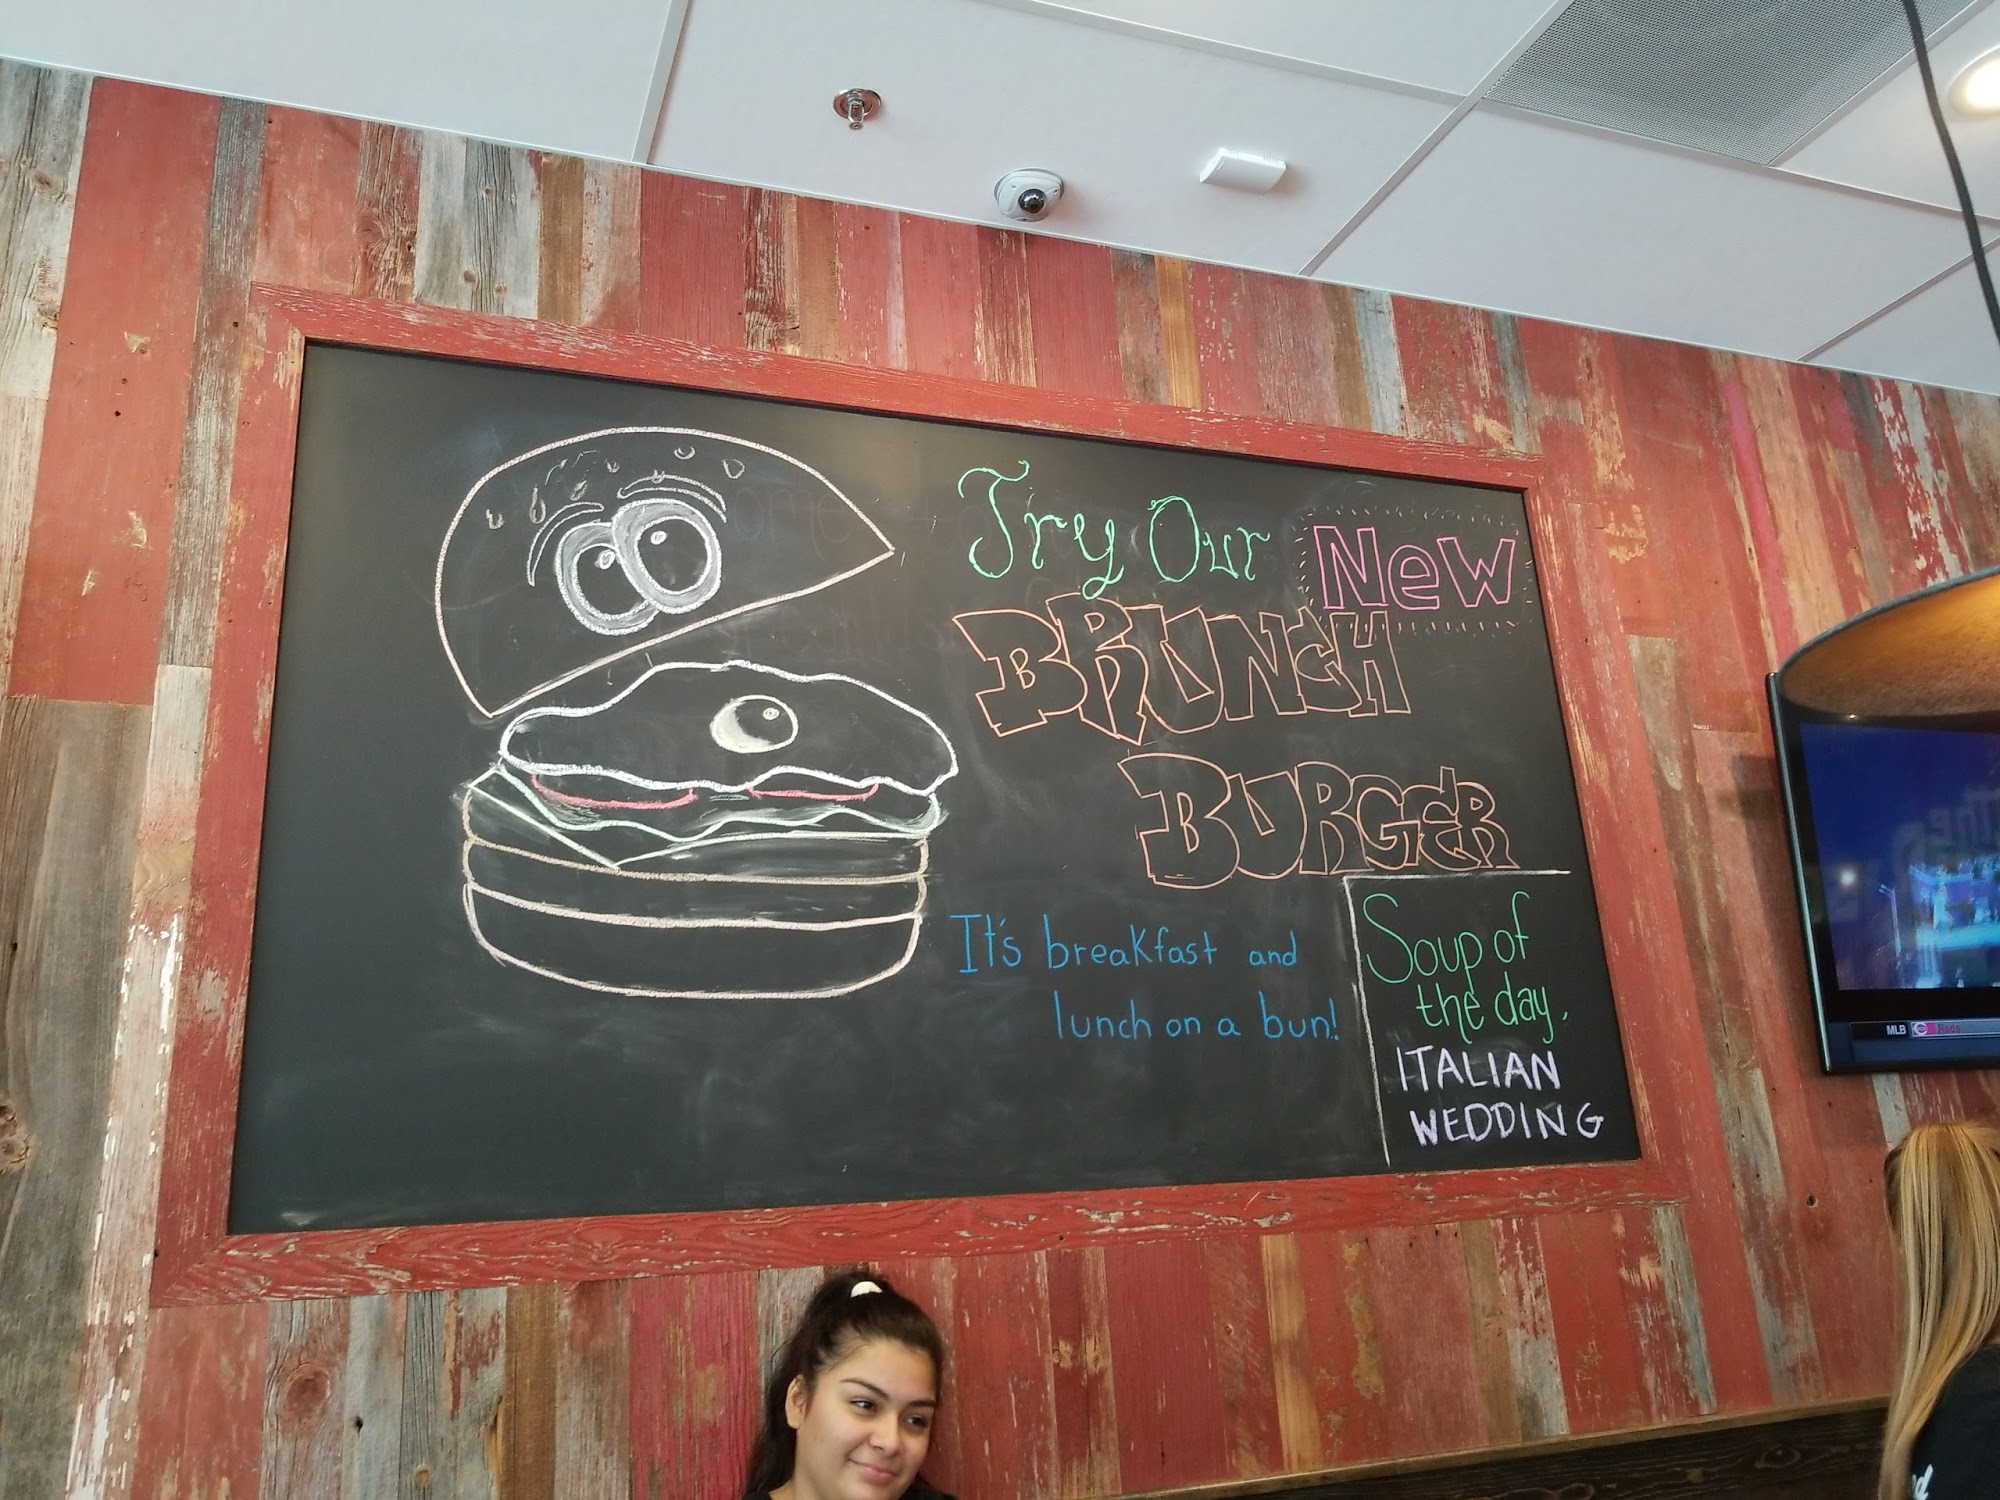 Try Our New
BRUNCH
BURGER
It's breakfast and
lunch on a bun!
Soup of
the day.
ITALIAN
WEDDING
MLB Reds